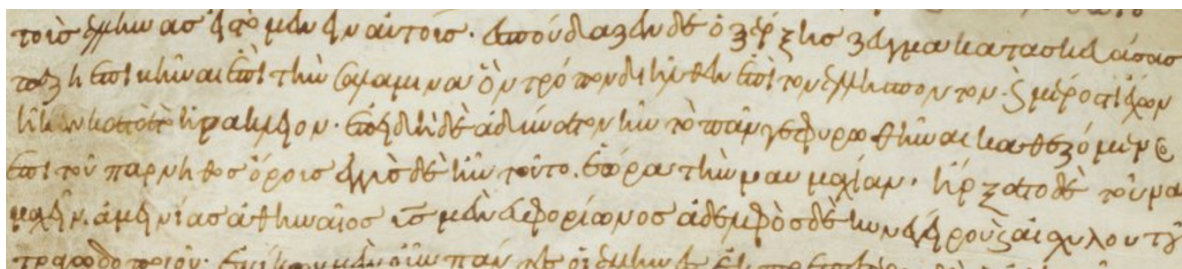 τοῖς ἕλληνας αὐτοῖς. ἐσπούδαζεν δὲ ὁ ξέρξης ζεῦγμα κατασκευάσας
πεζῇ ἐπιβῆναι ἐπὶ τὴν σαλαμινα ὃν τρόπον διῆλθεν ἐπὶ τὸν ἑλλήσποντον. μέρος τι
κατὰ τὸ ἡράκλειον. ἐπειδὴ δὲ ἀδύνατον ἦν τὸ πᾶν γεφυρωθῆναι καθεζόμενος
ἐπὶ τοῦ πάρνηθος ὄροις ἐγγὺς δὲ ἦν τοῦτο. ἑώρα τὴν ναυμαχίαν. ἤρξατο δὲ τοῦ ναυ
μαχεῖν. ἀμεινίας ἀθηναῖος υἱὸς μὲν εὐφορίωνος ἀδελφὸς δὲ κυνεγείρου καὶ αἰσχύλου τοῦ
τραγωδοποιοῦ. ἐνίκων μὲν οὖν πάντες οἱ ἕλληνες